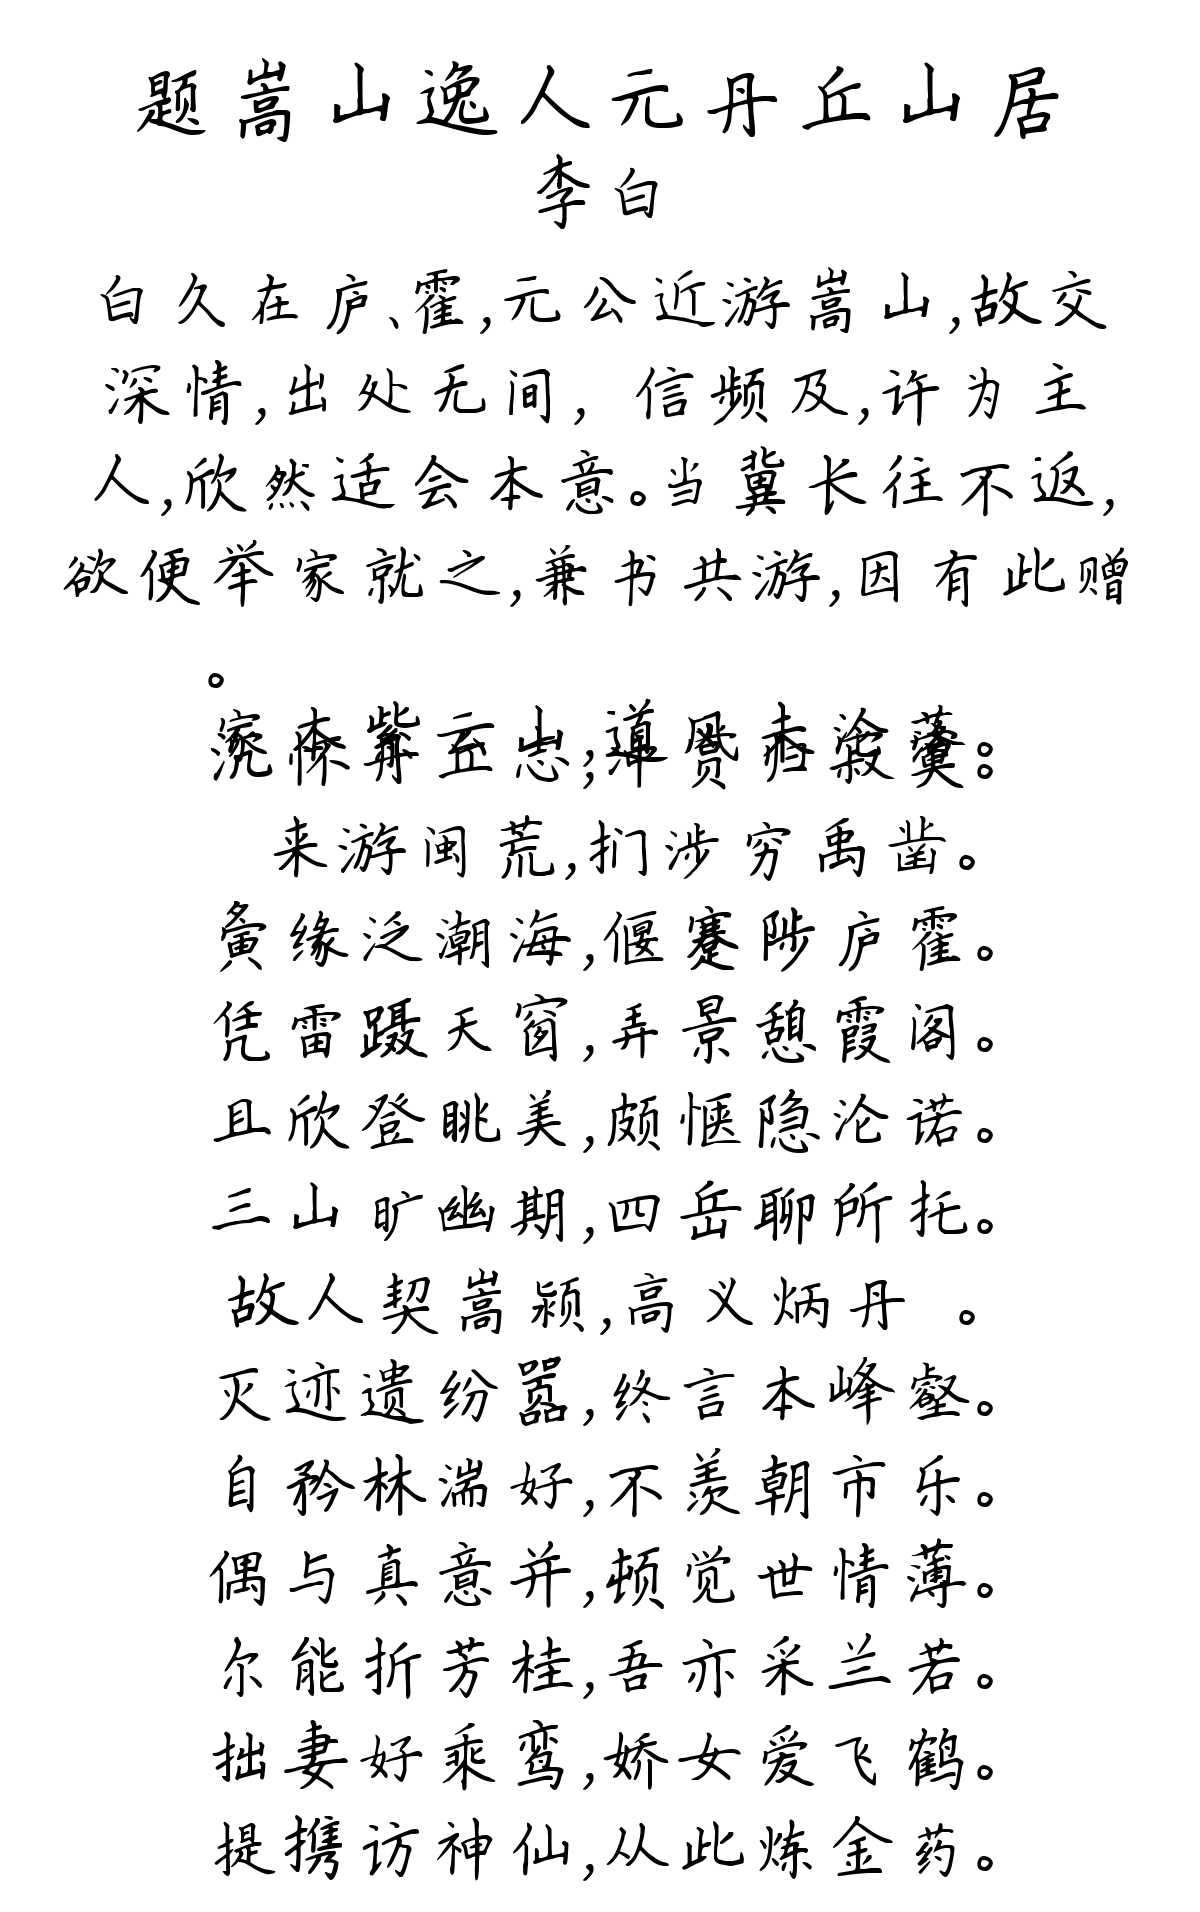 题嵩山逸人元丹丘山居
李白
白久在庐、霍,元公近游嵩山,故交
深情,出处无间, 信频及,许为主
人,欣然适会本意。当冀长往不返,
欲便举家就之,兼书共游,因有此赠
。
家本紫云山,道风未沦落。
沉怀丹丘志,冲赏归寂寞。
来游闽荒,扪涉穷禹凿。
夤缘泛潮海,偃蹇陟庐霍。
凭雷蹑天窗,弄景憩霞阁。
且欣登眺美,颇惬隐沦诺。
三山旷幽期,四岳聊所托。
故人契嵩颍,高义炳丹 。
灭迹遗纷嚣,终言本峰壑。
自矜林湍好,不羡朝市乐。
偶与真意并,顿觉世情薄。
尔能折芳桂,吾亦采兰若。
拙妻好乘鸾,娇女爱飞鹤。
提携访神仙,从此炼金药。